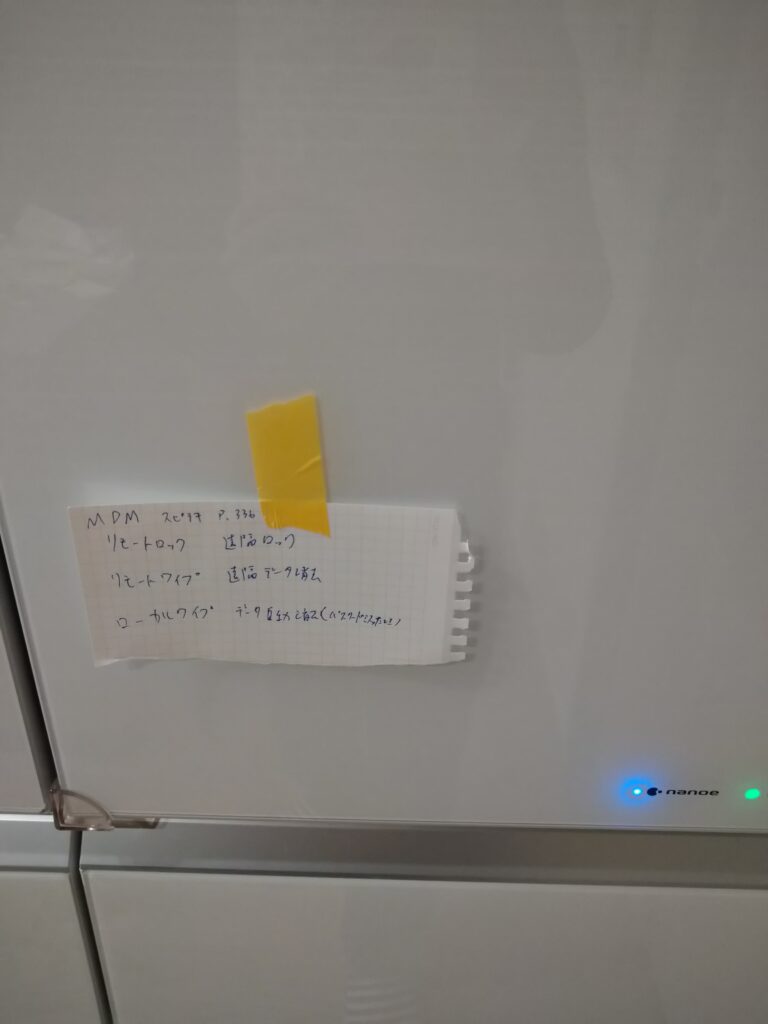 MDM スピマネ P.336
リモートロック 遠隔ロック
リモートワイプ 遠隔データ消去
ローカルワイプ データ自動消去(パスワード
nanoe